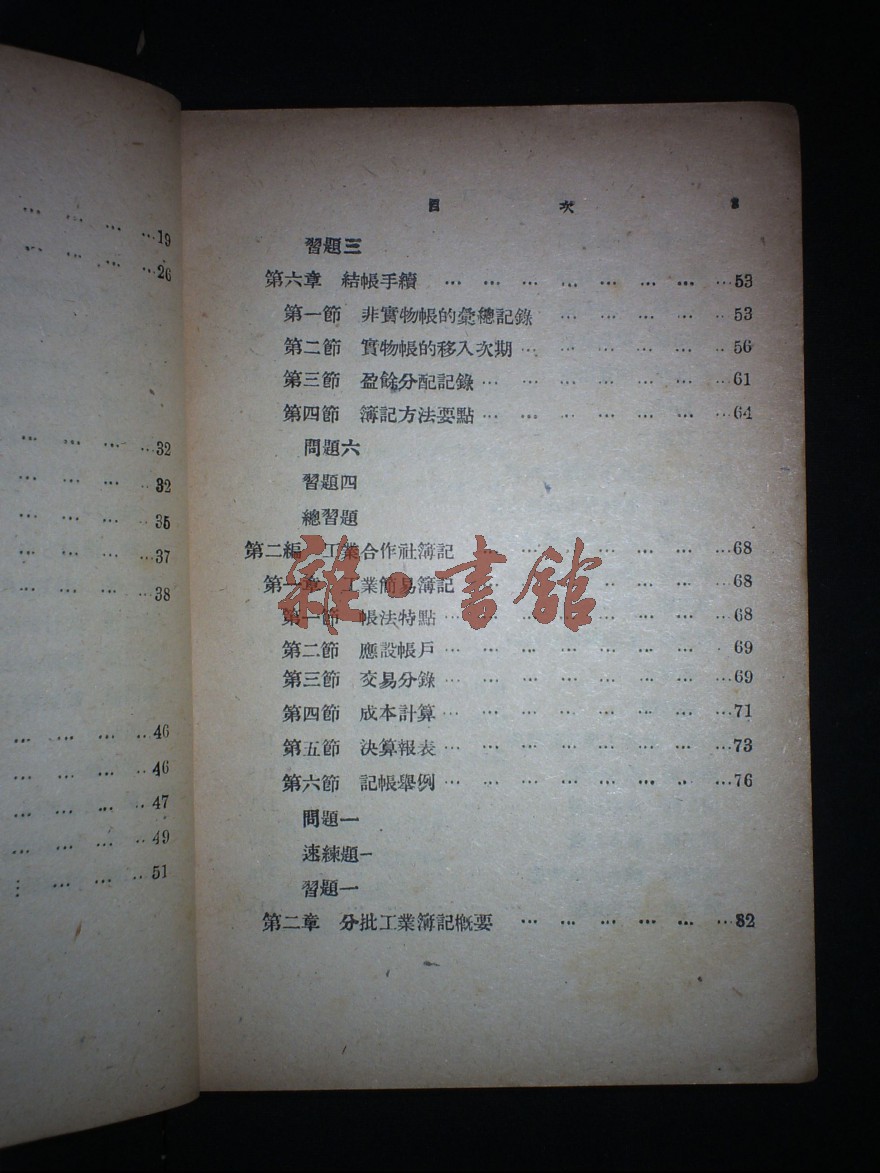 …19
…26
…32
…32
…35
…37
…38
…46
…46
…47
…49
…51
目 次 3
習題三
第六章 結帳手續 … … … … … … … …53
第一節 非實物帳的彙總記錄 … … … … …53
第二節 實物帳的移入次期… … … … … …56
第三節 盈餘分配記錄… … … … … … …61
第四節 簿記方法要點… … … … … … …64
問題六
習題四
總習題
第二編 工業合作社簿記 … … … … … … …68
第一章 工業簡易簿記 … … … … … … …68
第一節 帳法特點 … … … … … … …68
第二節 應設帳戶… … … … … … … …69
第三節 交易分錄… … … … … … … …69
第四節 成本計算… … … … … … … …71
第五節 決算報表… … … … … … … …73
第六節 記帳舉例… … … … … … … …76
問題一
速練題一
習題一
第二章 分批工業簿記概要 … … … … … …82
雜·書館